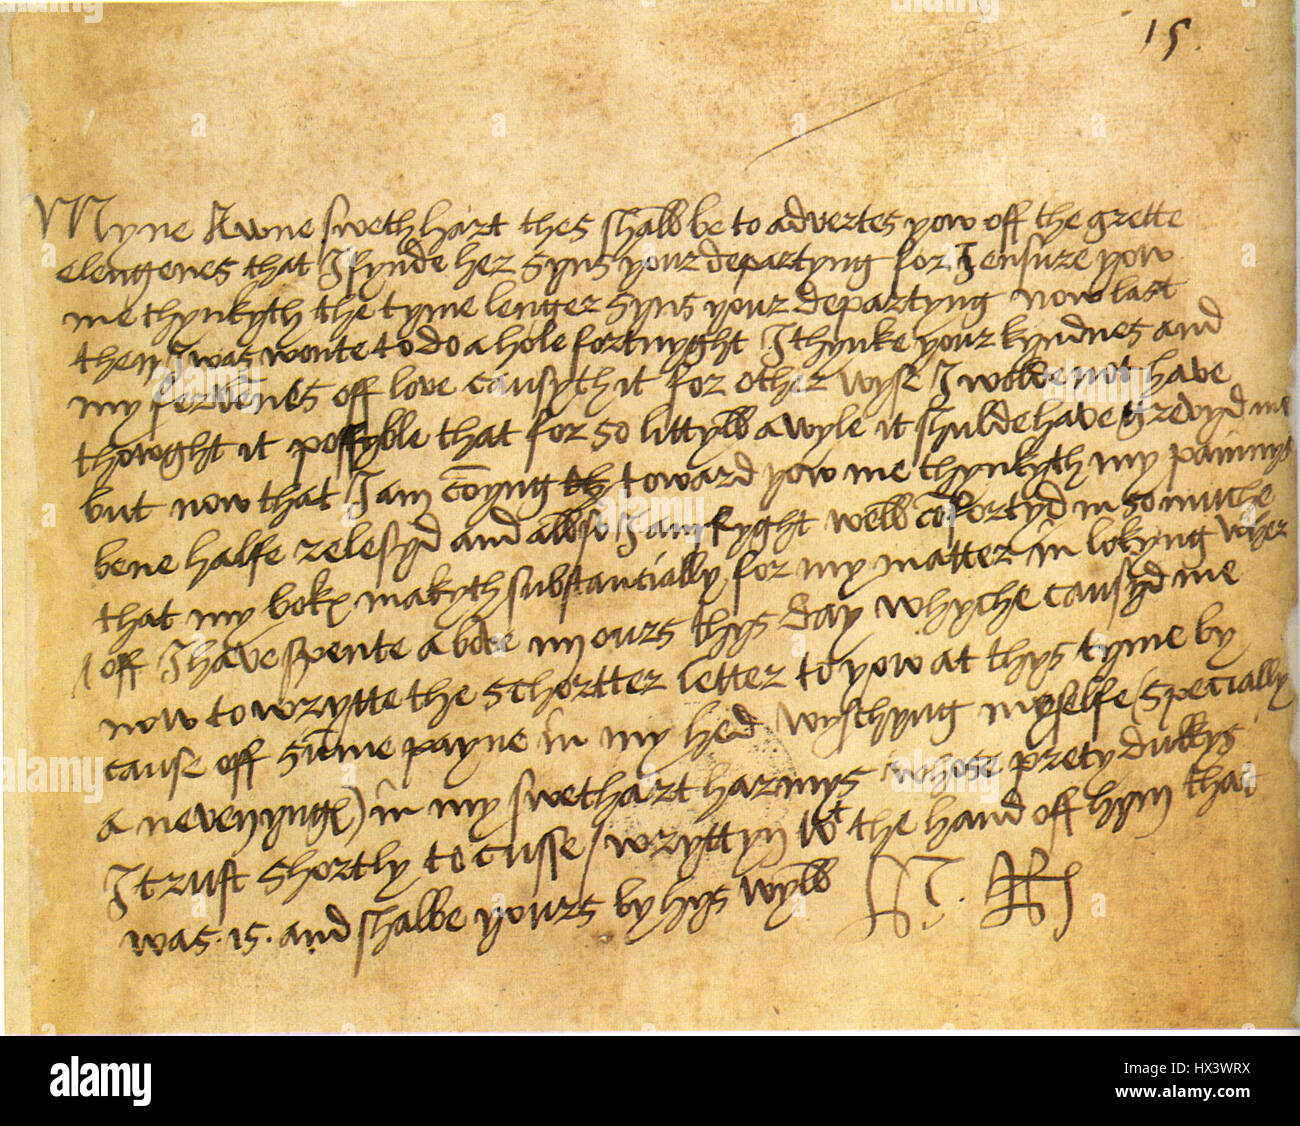 15.
Myne Awne swethhart thes shall be to advertes yow off the grette
elengenes that I fynde her syns your departyng for I ensure yow
me thynkyth the tyme lenger syns your departyng now last
then I was wonte to do a hole fortnyght I thynke your kyndnes and
my fervenes off love causyth it for other wyse I wolde not have
thowght it possyble that for so littyll a wyle it shulde have grevyd me
but now that I am comyng toward yow me thynkyth my painnys
bene halfe relesyd and allso I am ryght well comfortyd in so muche
that my boke makyth substantially for my matter in lokyng wher
off I have spente above iiij ours thys day whyche causyd me
now to wrytte the schortter letter to yow at thys tyme by
cause off summe payne in my hed wyschyng myselfe (specially
a nevenyng) in my swethart harmys whose prety dukkys
I trust shortly to cusse / wryttyn wt the hand off hym that
was .is. and shalbe yours by hys wyll
alamy
HX3WRX
www.alamy.com